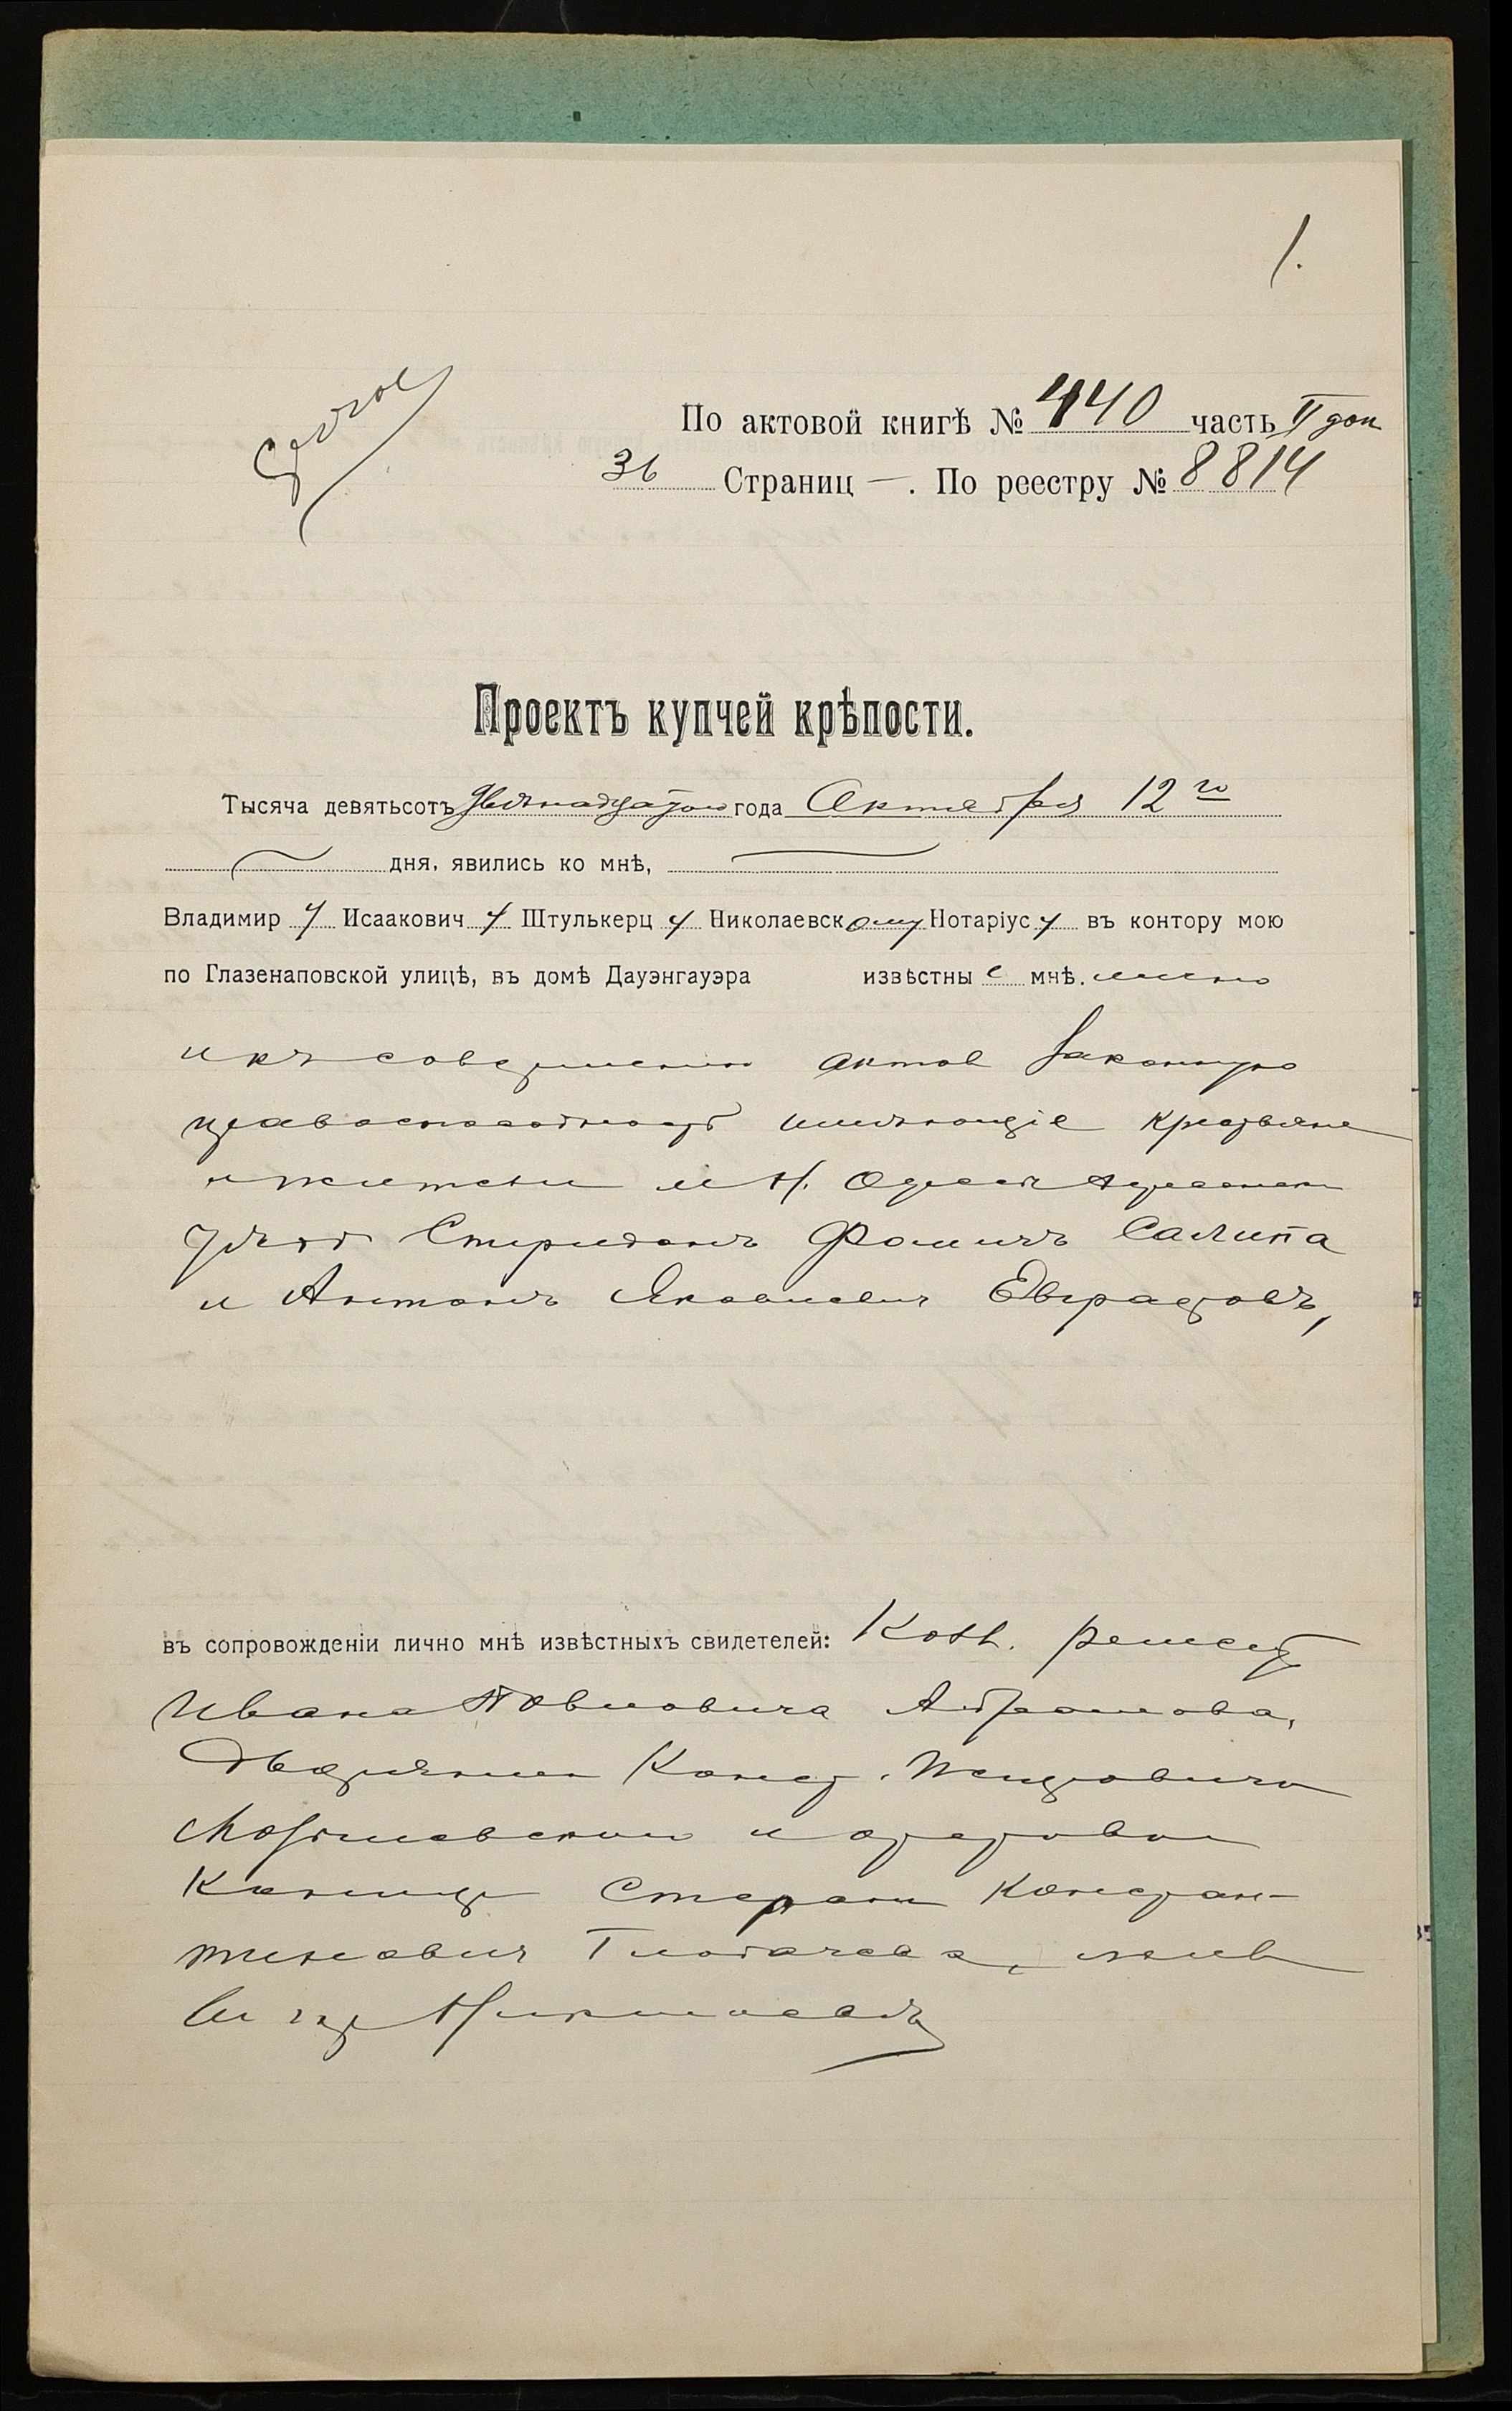 1.
По актовой книгѣ № 440 часть II доп
36 Страниц —. По реестру № 8814
Проектъ купчей крѣпости.
Тысяча девятьсотъ двѣнадцатого года Октября 12 го
дня, явились ко мнѣ,
Владимир у Исаакович у Штулькерц у Николаевск ому Нотаріус у въ контору мою
по Глазенаповской улицѣ, въ домѣ Дауэнгауэра извѣстны е мнѣ. лично
и къ совершенію актов законную
правоспособность имѣющіе крестьяне
и жители м Н. Одессы Одесскаго
уѣзд Спиридонъ Фомичъ Салипа
и Антонъ Яковлевич Евградовъ,
въ сопровожденіи лично мнѣ извѣстныхъ свидетелей:
Ивана Абрамова,
Дворянина Конст.
и
Степана Констан-
тинович жив
в гор Николаевѣ